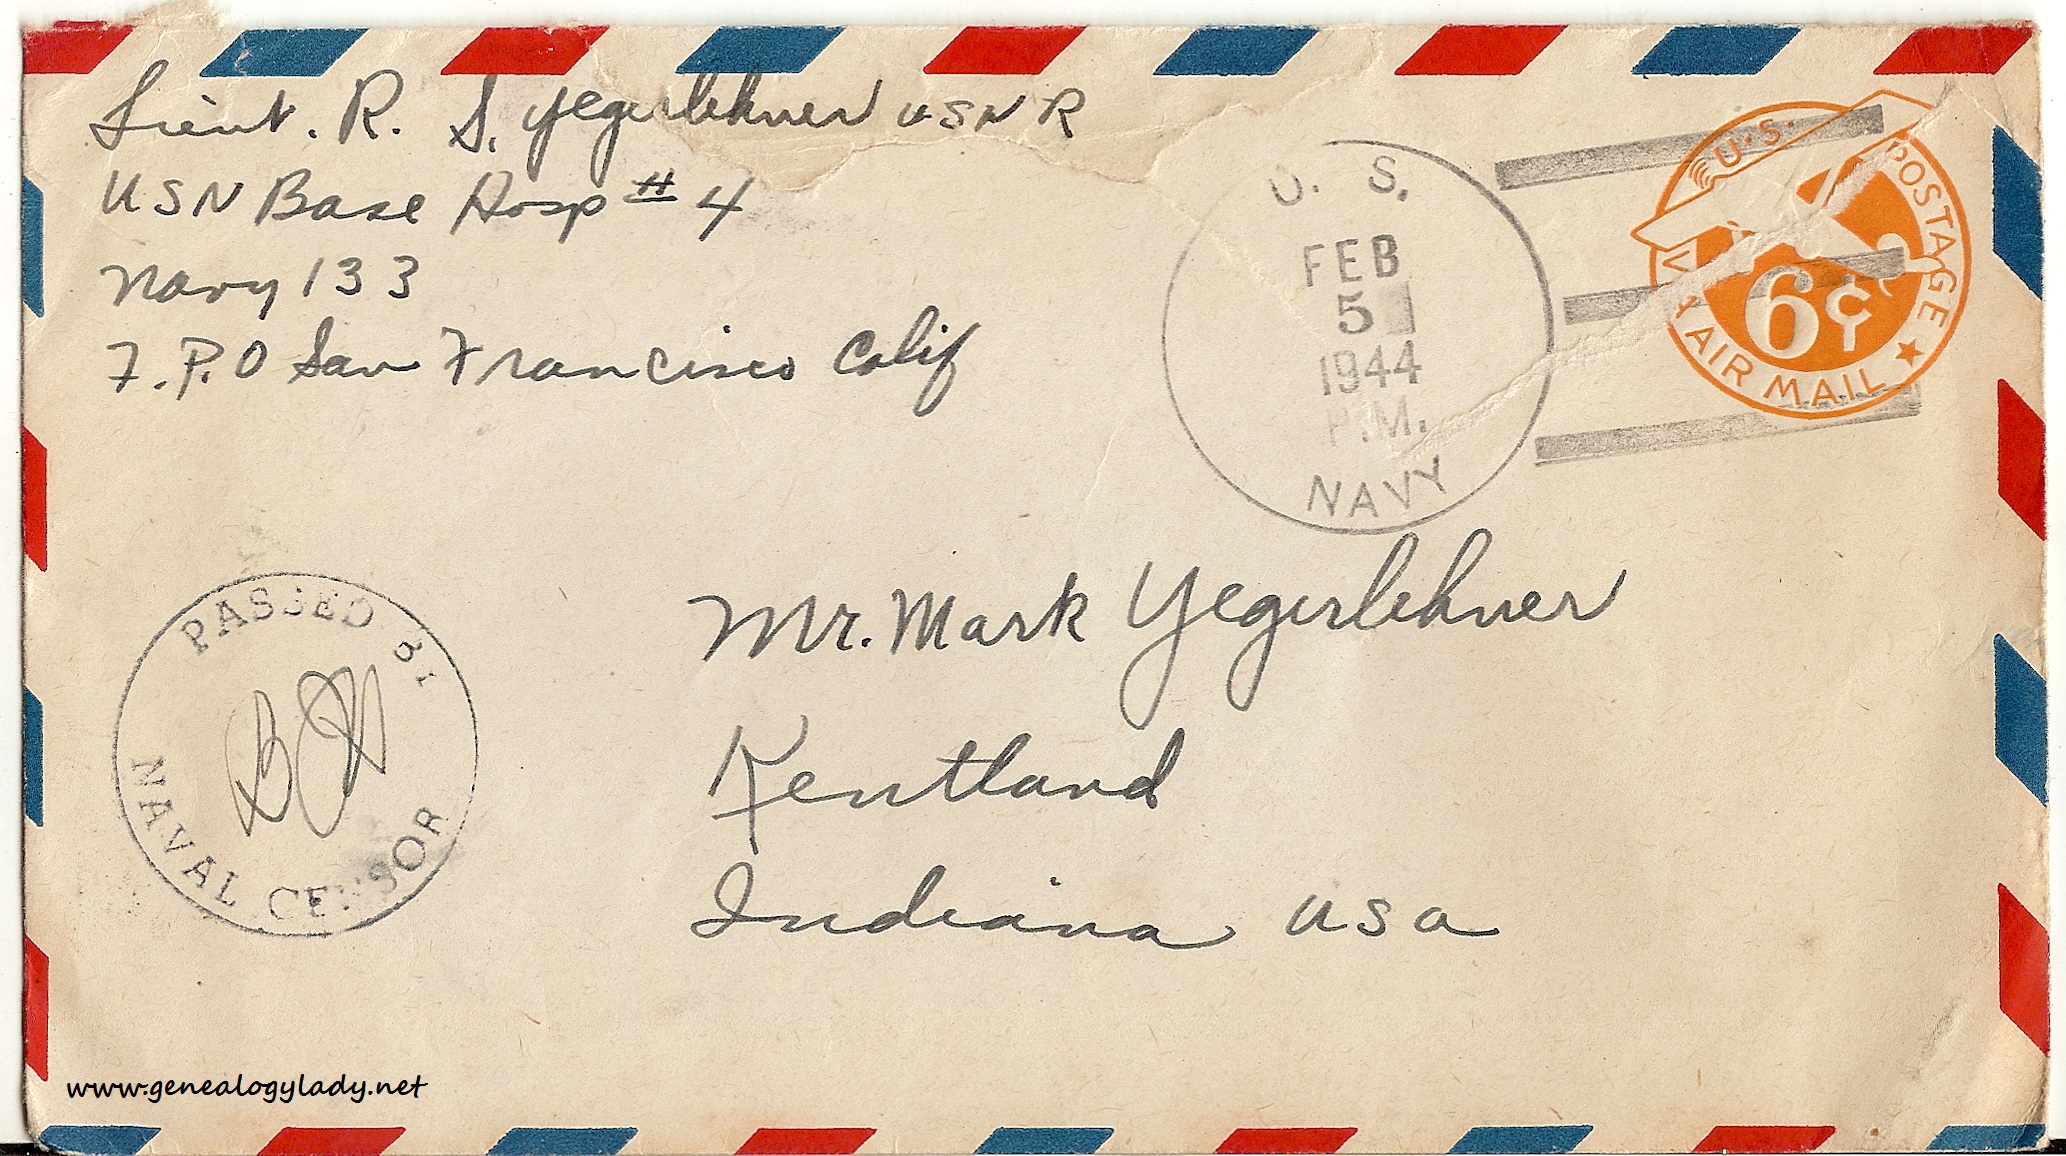 Lieut. R. S. Yegerlehner USNR
USN Base Hosp # 4
Navy 133
F.P.O San Francisco Calif
U. S.
FEB
5
1944
P.M.
NAVY
U.S. POSTAGE
6¢
VIA AIR MAIL
PASSED BY
NAVAL CENSOR
Mr. Mark Yegerlehner
Kentland
Indiana USA
www.genealogylady.net